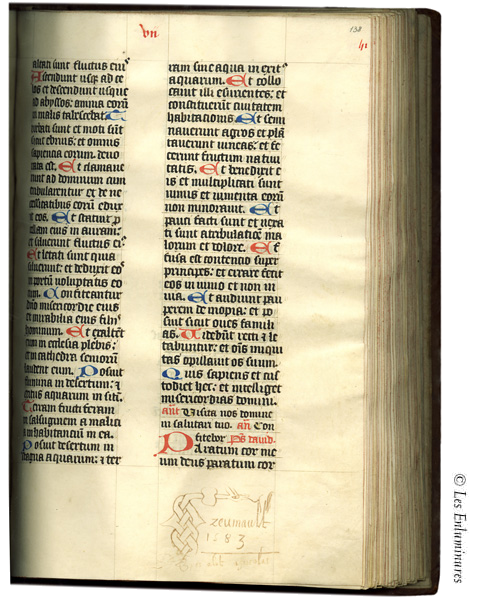 vii
138
altati sunt fluctus eiꝰ
Ascendunt usqꝫ ad ce
los et descendunt usque
ad abyssos: anima eorū
in malis tabescebat. T
urbati sunt et moti sūt
sicut ebrius: et omnis
sapiencia eorum deuo
rata est. Et clamaue
runt ad dominum cum
tribularentur et de ne
cessitatibus eorū edux
it eos. Et statuit p
cellam eius in auram:
et siluerunt fluctus eiꝰ
Et letati sunt quia
siluerunt: et deduxit eoˢ
in portū voluptatis eo
rum. Confiteantur
dn̄o misericordie eius
et mirabilia eius filijs
hominum. Et exaltēt
eum in ecclesia plebis:
et in cathedra seniorū
laudent eum. Posuit
flumina in desertum: ⁊
exitus aquarum in sitī.
Terram fructiferam
in salsuginem a malici
a inhabitanciū in ea.
Posuit desertum in
stagna aquarum: ⁊ ter
ram sine aqua in exitꝰ
aquarum. Et collo
cauit illic esurientes: et
constituerūt ciuitatem
habitacionis. Et semi
nauerunt agros et plā
tauerunt vineas: et fe
cerunt fructum natiui
tatis. Et benedixit e
is et multiplicati sunt
nimis et iumenta eorū
non minorauit. Et
pauci facti sunt et vexa
ti sunt atribulaciōe ma
lorum et dolore. Ef
fusa est contencio super
principes: et errare fecit
eos in inuio et non in
uia. Et adiuuit pau
perem de inopia: et po
suit sicut oues famili
as. Videbūt recti ⁊ le
tabuntur: et om̄s iniqui
tas opillauit os suum.
Quis sapiens et cus
todiet hec: et intelliget
misericordias domini.
an̄t Visita nos domine
in salutari tuo. an̄ Con
fitebor Ps̄ dauid.
Paratum cor me
um deus paratum cor
zeumault
1683
© Les Enluminures